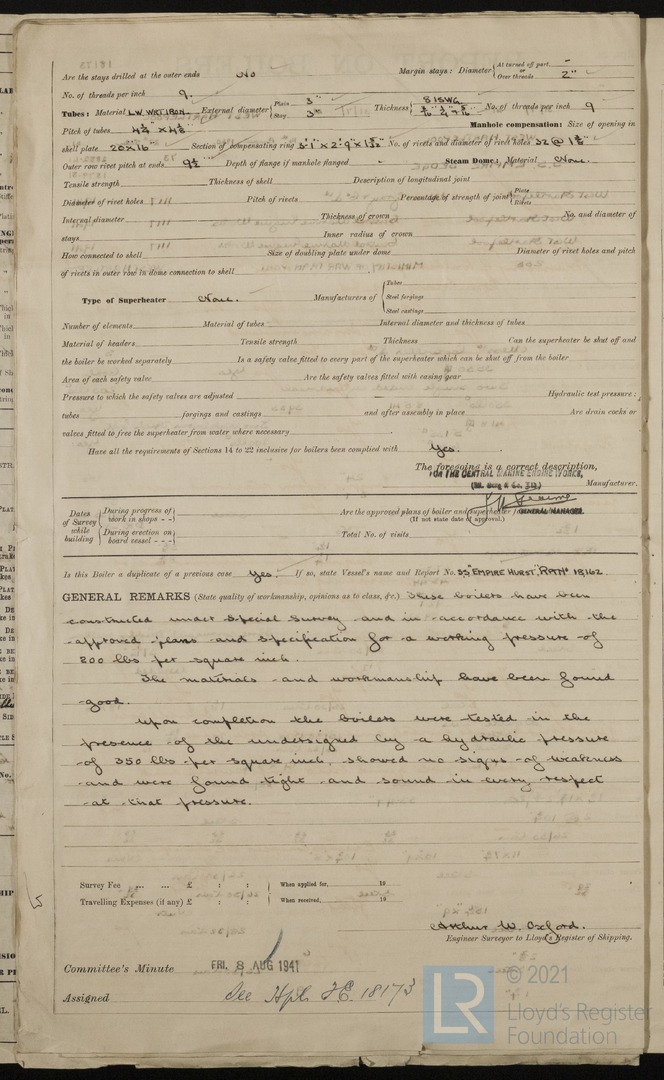 Are the stays drilled at the outer ends No Margin stays: Diameter { At turned off part, " or Over threads 2"
No. of threads per inch 9.
Tubes: Material L.W. WRT IRON External diameter { Plain 3" Stay 3" Thickness { 8 ISWG No. of threads per inch 9
Pitch of tubes Manhole compensation: Size of opening in
shell plate 20 x 16" Section of compensating ring No. of rivets and diameter of rivet holes 32 @
Outer row rivet pitch at ends 9½" Depth of flange if manhole flanged Steam Dome: Material None.
Tensile strength Thickness of shell Description of longitudinal joint
Diameter of rivet holes Pitch of rivets Percentage of strength of joint { Plate Rivets
Internal diameter Thickness of crown No. and diameter of
stays Inner radius of crown
How connected to shell Size of doubling plate under dome Diameter of rivet holes and pitch
of rivets in outer row in dome connection to shell
Type of Superheater None. Manufacturers of { Tubes Steel forgings Steel castings
Number of elements Material of tubes Internal diameter and thickness of tubes
Material of headers Tensile strength Thickness Can the superheater be shut off and
the boiler be worked separately Is a safety valve fitted to every part of the superheater which can be shut off from the boiler
Area of each safety valve Are the safety valves fitted with easing gear
Pressure to which the safety valves are adjusted Hydraulic test pressure:
tubes forgings and castings and after assembly in place Are drain cocks or
valves fitted to free the superheater from water where necessary
Have all the requirements of Sections 14 to 22 inclusive for boilers been complied with Yes.
The foregoing is a correct description,
FOR THE CENTRAL MARINE ENGINE WORKS,
(Wm. Gray & Co. Ltd.) Manufacturer.
GENERAL MANAGER.
Dates of Survey while building { During progress of work in shops - - During erection on board vessel - - -
Are the approved plans of boiler and superheater
(If not state date of approval.)
Total No. of visits
Is this Boiler a duplicate of a previous case Yes. If so, state Vessel's name and Report No. SS "EMPIRE HURST" RPT No 18,162.
GENERAL REMARKS (State quality of workmanship, opinions as to class, &c.) These boilers have been
constructed under special survey and in accordance with the
approved plans and specification for a working pressure of
200 lbs per square inch.
The materials and workmanship have been found
good.
Upon completion the boilers were tested in the
presence of the undersigned by a hydraulic pressure
of 350 lbs per square inch, showed no signs of weakness
and were found tight and sound in every respect
at that pressure.
Survey Fee ... ... £ : : When applied for, 19
Travelling Expenses (if any) £ : : When received, 19
Arthur W. Oxford.
Engineer Surveyor to Lloyd's Register of Shipping.
Committee's Minute FRI. 8 AUG 1941
Assigned See Hpl. F.E. 18173
© 2021
Lloyd's Register
Foundation
LR